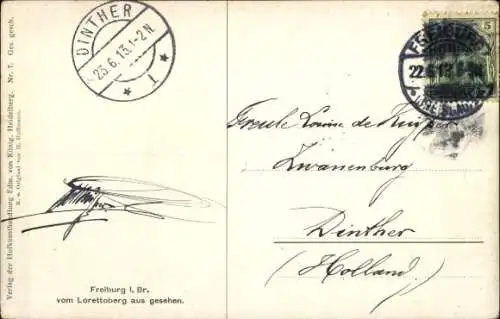 DINTHER
23.6.13.1-2N
1
5
FREIBURG
22.6.13
Freule Louise de Kuyper
Zwanenburg
Dinther
(Holland)
Freiburg i. Br.
vom Lorettoberg aus gesehen.
Verlag der Hofkunsthandlung Edm. von König, Heidelberg. Nr. 7. Ges. gesch.
N. e. Original von H. Hoffmann.